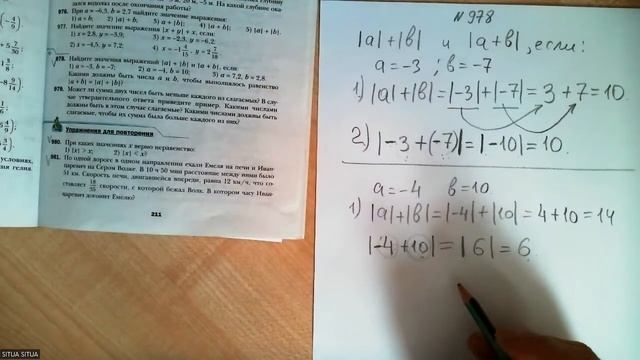 976. При a = −6,3, b = 2,7 найдите значение выражения:
1) a + b; 2) |a| + b; 3) a + |b|; 4) |a| + |b|;
977. Найдите значение выражения |x + y| + x, если:
1) x = 2,8, y = −3,9; 3) x = −2,3, y = −6,2;
2) x = −4,5, y = 7,2; 4) x = −1 4/15, y = 2 7/18
978. Найдите значения выражений |a| + |b| и |a + b|, если:
1) a = −3, b = −7; 2) a = −4, b = 10; 3) a = 7,2, b = 2,8.
Какими должны быть числа a и b, чтобы выполнялось равенство
|a + b| = |a| + |b|?
979. Может ли сумма двух чисел быть меньше каждого из слагаемых? В слу-
чае утвердительного ответа приведите пример. Какими числами
должны быть в этом случае слагаемые? Какими числами должны быть
слагаемые, чтобы их сумма была больше каждого из них?
Упражнения для повторения
980. При каких значениях x верно неравенство:
1) |x| > x; 2) |x| < x?
981. По одной дороге в одном направлении ехали Емеля на печи и Иван-
царевич на Сером Волке. В 10 ч 50 мин расстояние между ними было
51 км. Скорость печи, двигавшейся впереди, равна 12 км/ч, что со-
ставляет 18/55 скорости, с которой бежал Волк. В котором часу Иван-
царевич догонит Емелю?
211
условиях,
N 978
|a|+|b| и |a+b|, если:
a=-3; b=-7
1) |a|+|b|=|-3|+|-7|=3+7=10
2) |-3+(-7)|=|-10|=10.
a=-4 b=10
1) |a|+|b|=|-4|+|10|=4+10=14
|-4+10|=|6|=6
SITUA SITUA